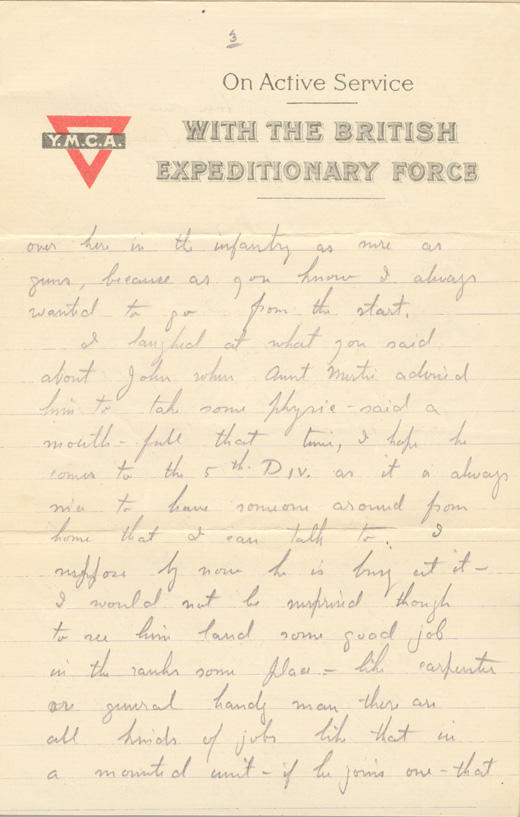 3
On Active Service
WITH THE BRITISH
EXPEDITIONARY FORCE
Y.M.C.A.
over here in the infantry as sure as
guns, because as you know I always
wanted to go from the start.
I laughed at what you said
about John when Aunt advised
him to take some physic - said a
mouth-full that time, I hope he
comes to the 5th. DIV. as it is always
nice to have someone around from
home that I can talk to. I
suppose by now he is busy at it -
I would not be surprised though
to see him land some good job
in the ranks some place - like carpenter
or general handy man there are
all kinds of jobs like that in
a mounted unit - if he joins one - that